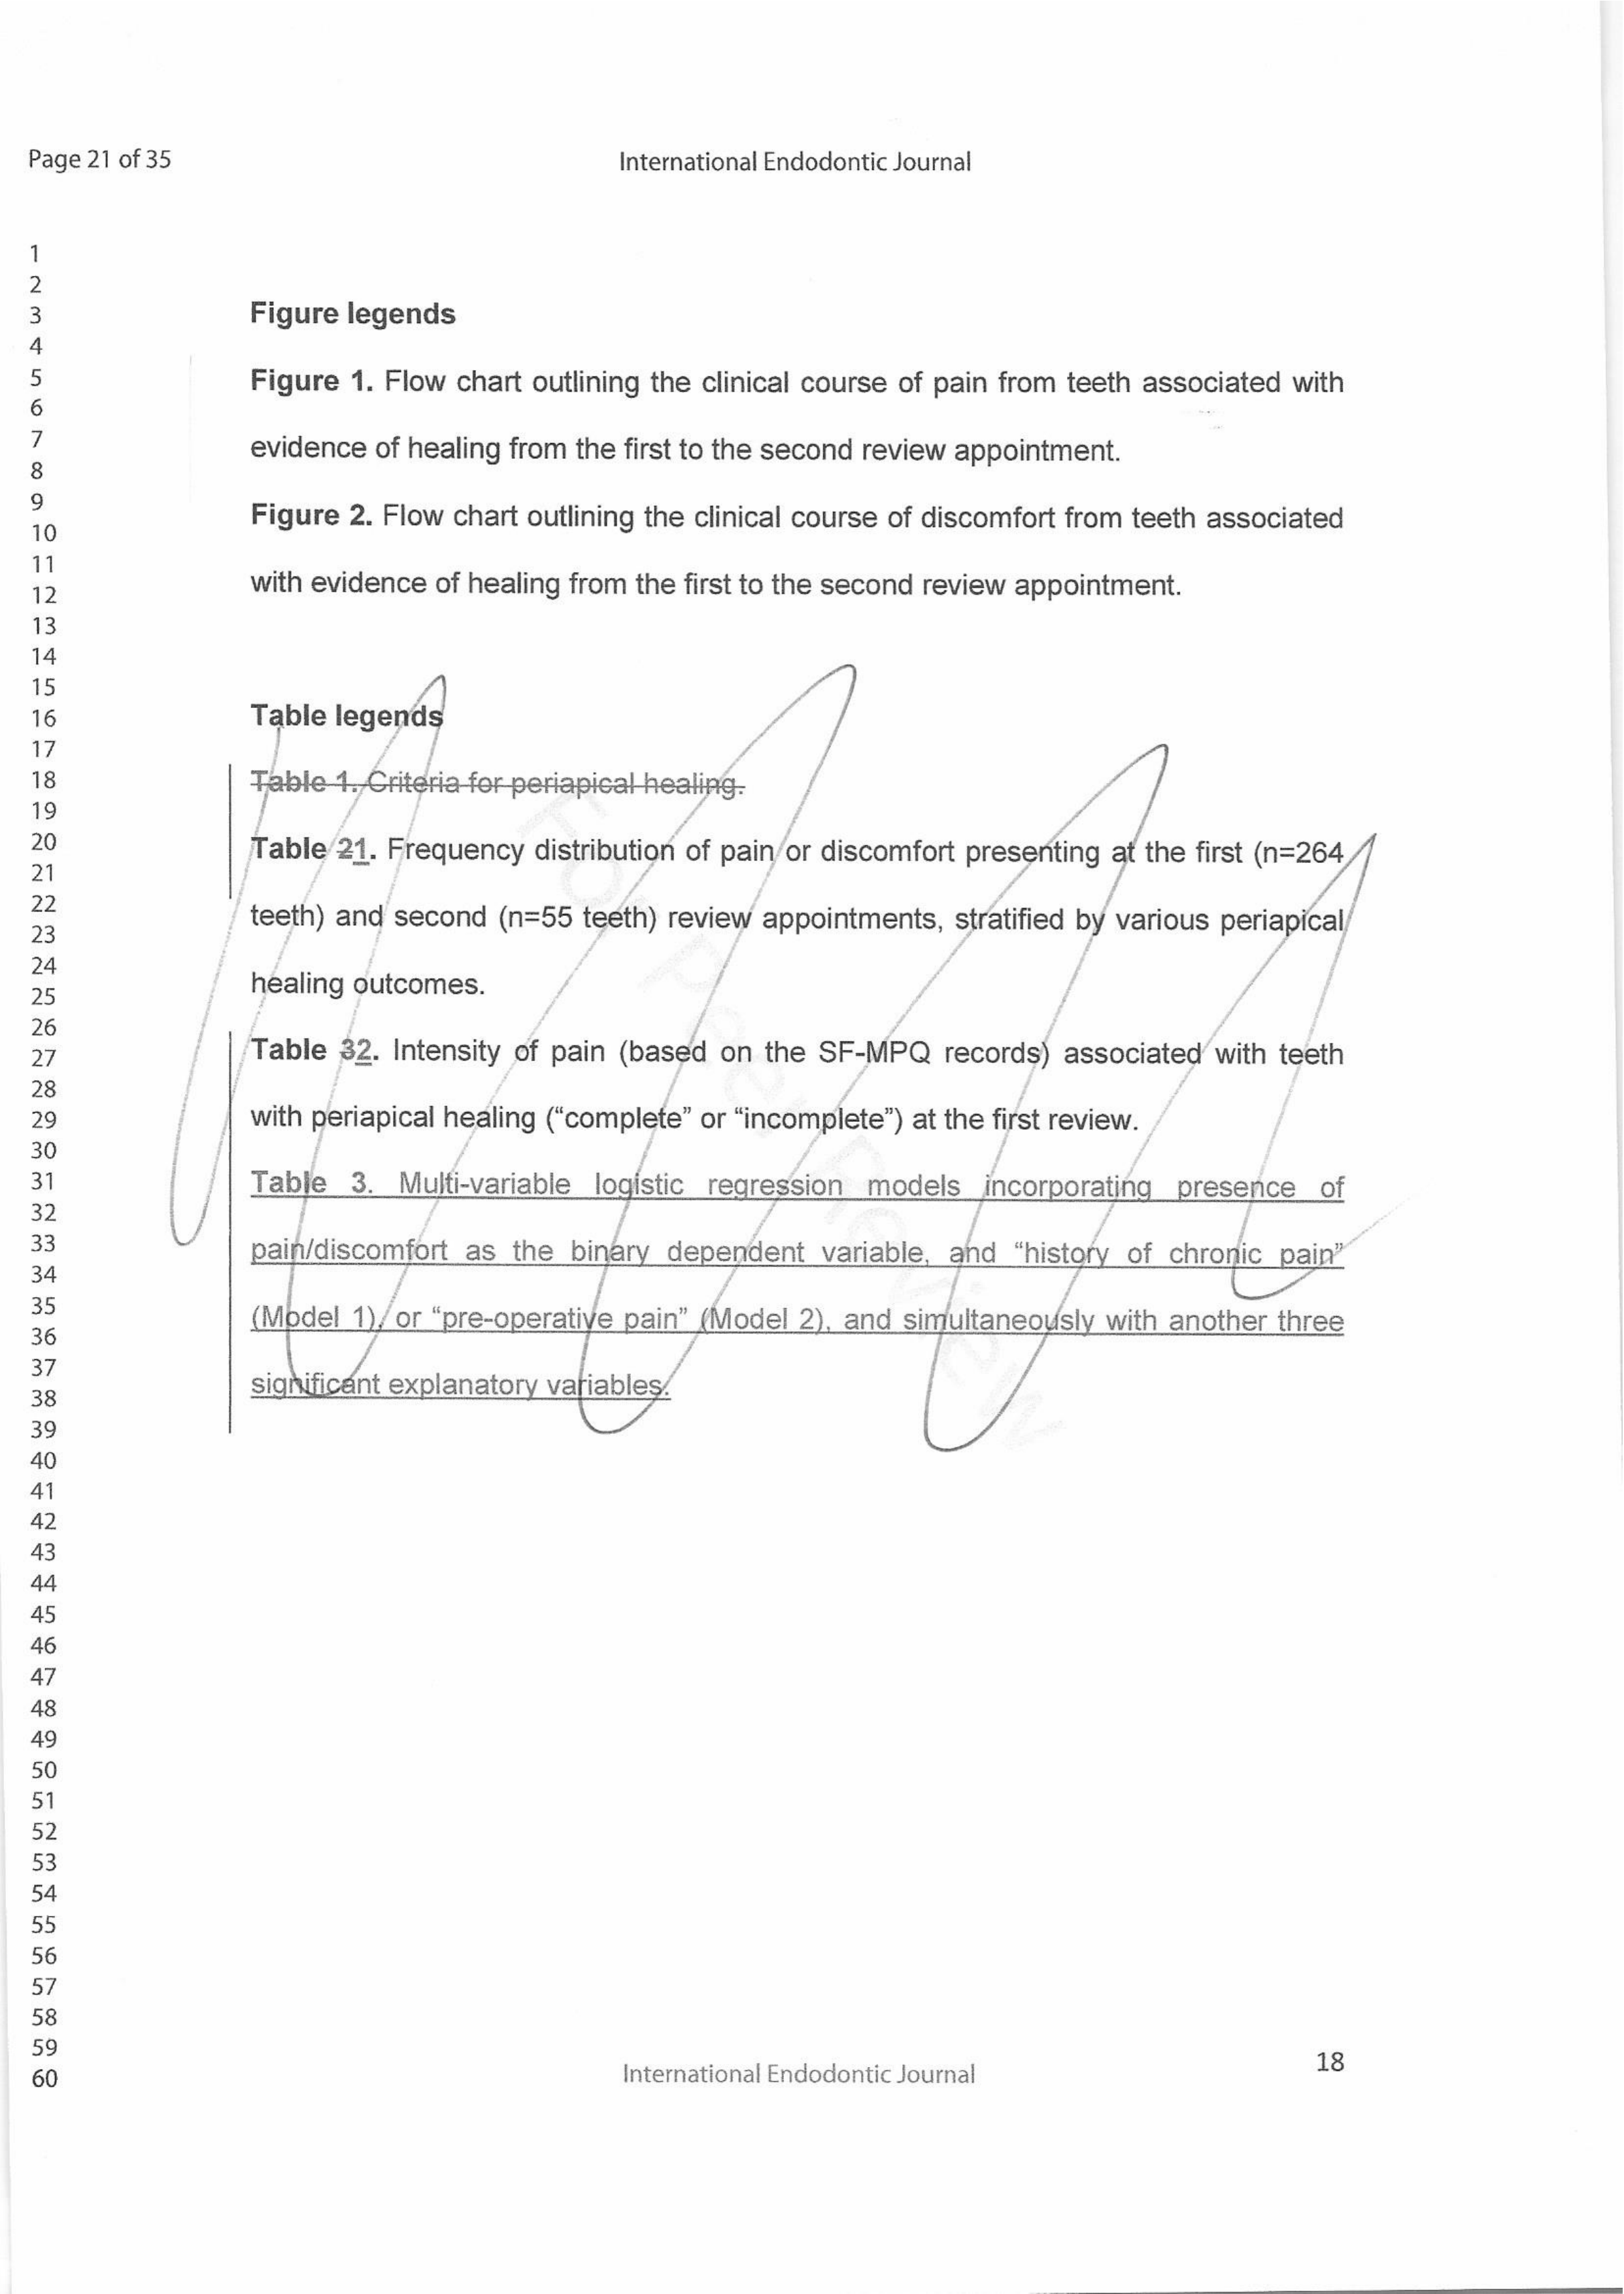 Page 21 of 35
International Endodontic Journal
1
2
3
4
5
6
7
8
9
10
11
12
13
14
15
16
17
18
19
20
21
22
23
24
25
26
27
28
29
30
31
32
33
34
35
36
37
38
39
40
41
42
43
44
45
46
47
48
49
50
51
52
53
54
55
56
57
58
59
60
Figure legends
Figure 1. Flow chart outlining the clinical course of pain from teeth associated with
evidence of healing from the first to the second review appointment.
Figure 2. Flow chart outlining the clinical course of discomfort from teeth associated
with evidence of healing from the first to the second review appointment.
Table legends
Table 1. Criteria for periapical healing.
Table 21. Frequency distribution of pain or discomfort presenting at the first (n=264
teeth) and second (n=55 teeth) review appointments, stratified by various periapical
healing outcomes.
Table 32. Intensity of pain (based on the SF-MPQ records) associated with teeth
with periapical healing (“complete” or “incomplete”) at the first review.
Table 3. Multi-variable logistic regression models incorporating presence of
pain/discomfort as the binary dependent variable, and “history of chronic pain”
(Model 1), or “pre-operative pain” (Model 2), and simultaneously with another three
significant explanatory variables.
For Peer Review
International Endodontic Journal
18